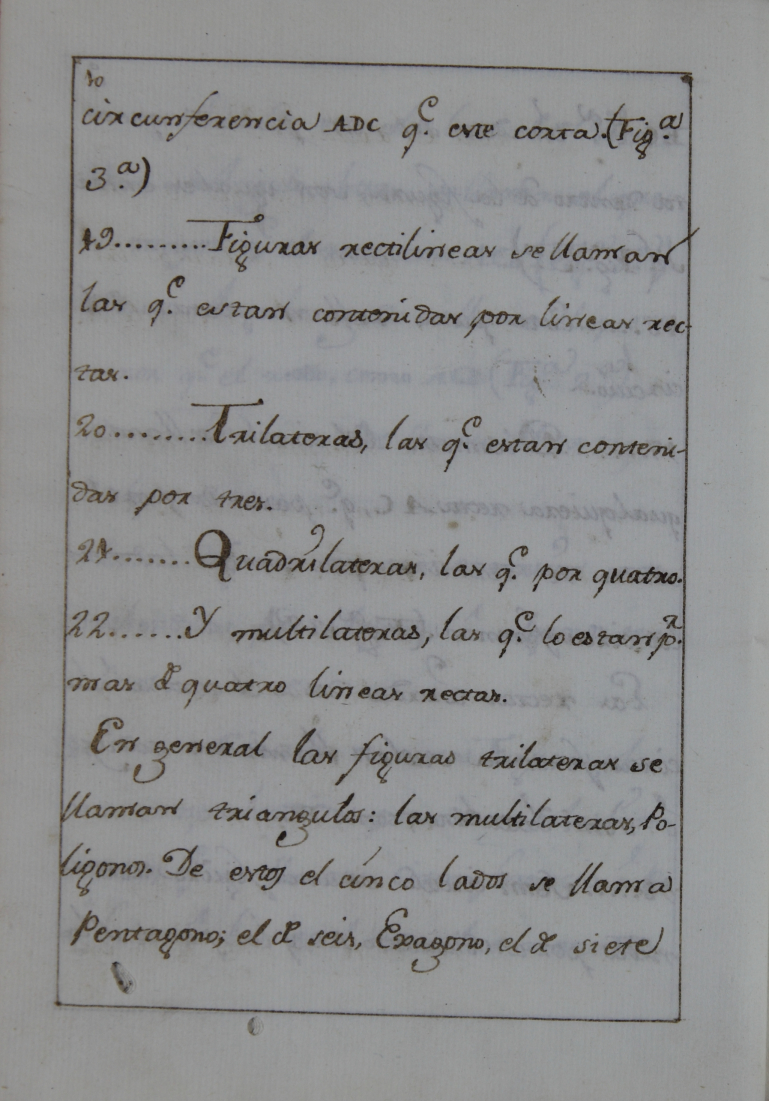 10
circunferencia ADC q.e este corta. (Fig.a
3.a)
19.........Figuras rectilineas se llaman
las q.e estan contenidas por lineas rec-
tas.
20........Trilateras, las q.e estan conteni-
das por tres.
21.......Quadrilateras, las q.e por quatro.
22......Y multilateras, las q.e lo estan p.r
mas de quatro lineas rectas.
En general las figuras trilateras se
llaman triangulos: las multilateras, Po-
ligonos. De estos el cinco lados se llama
Pentagono; el de seis, Exagono, el de siete